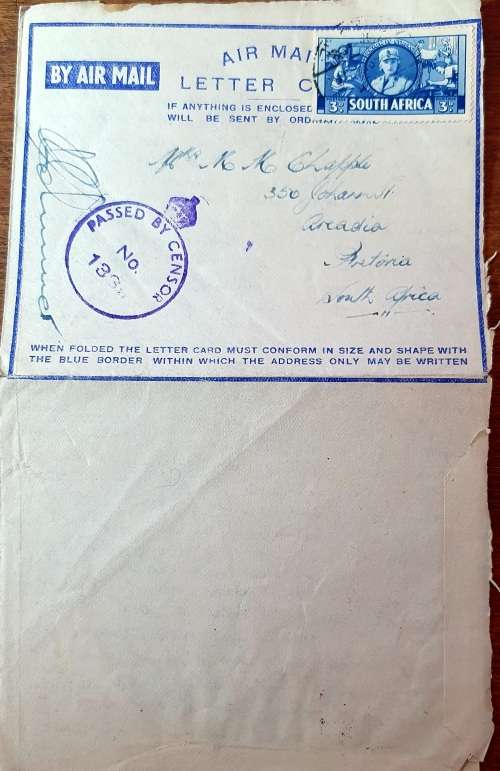 BY AIR MAIL
AIR MAIL
LETTER C
IF ANYTHING IS ENCLOSED
WILL BE SENT BY ORD
3D SOUTH AFRICA 3D
Mrs M M Chapple
350 Johann St
Arcadia
Pretoria
South Africa
PASSED BY CENSOR
No.
WHEN FOLDED THE LETTER CARD MUST CONFORM IN SIZE AND SHAPE WITH
THE BLUE BORDER WITHIN WHICH THE ADDRESS ONLY MAY BE WRITTEN